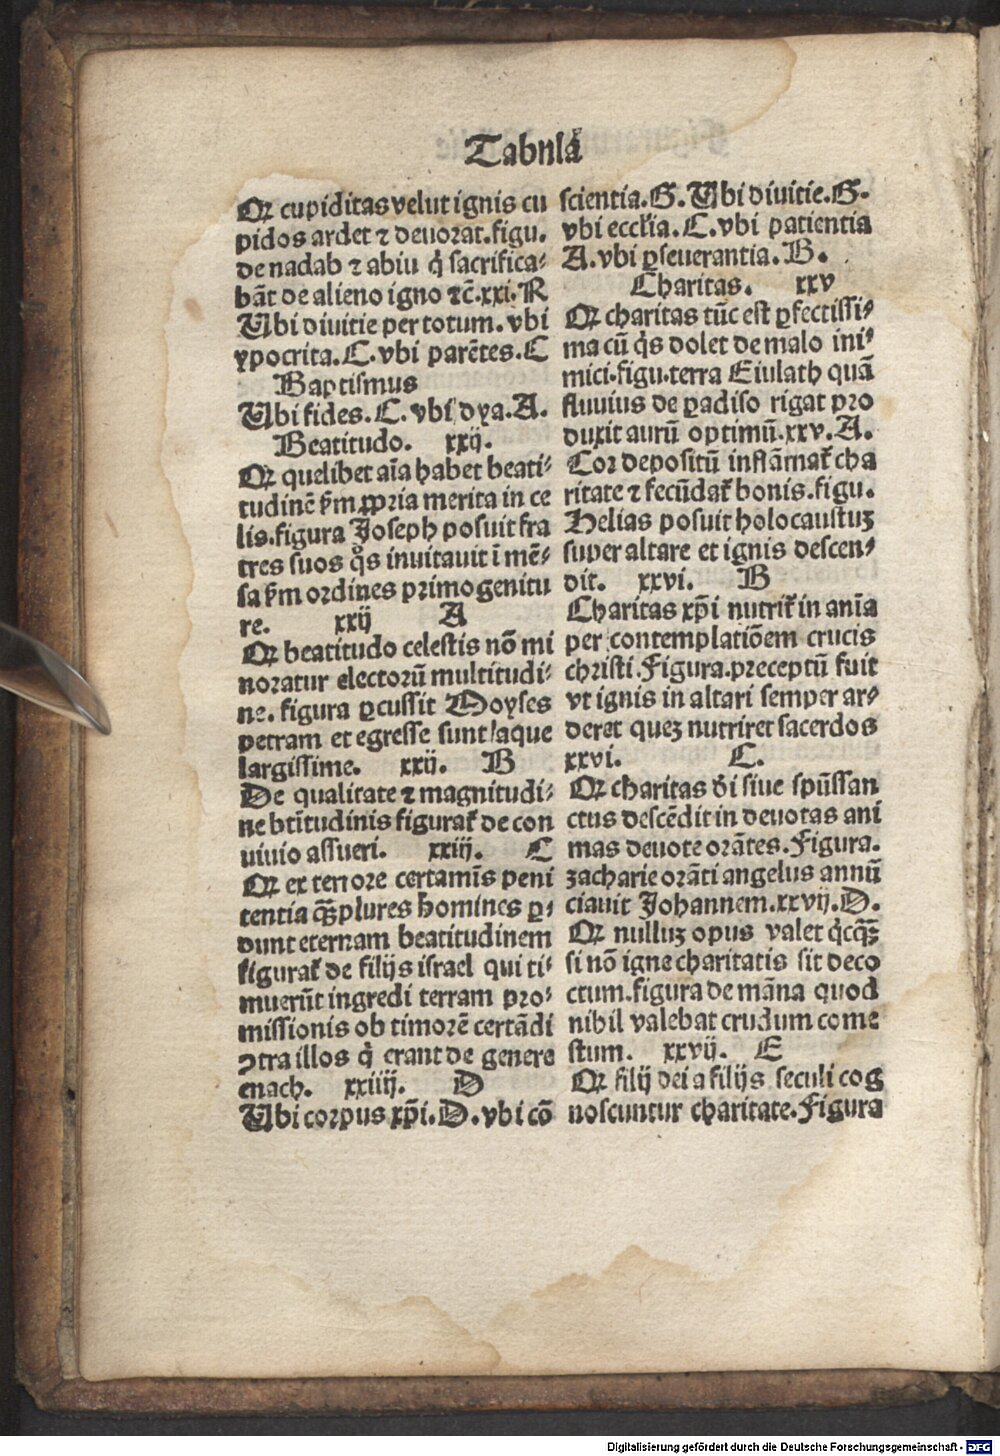 Tabula
Qꝛ cupiditas velut ignis cu
pidos ardet ⁊ deuoꝛat.figu.
de nadab ⁊ abiu q̇ sacrifica⸗
bāt de alieno igno ⁊c̄.xxi.R
Ubi diuitie per totum.vbi
ypocrita.C.vbi parētes.C
Baptismus
Ubi fides.C.vbi dya.A.
Beatitudo. xxij.
Qꝛ quelibet aīa habet beati⸗
tudinē ẜm ꝓpria merita in ce
lis.figura Joseph posuit fra
tres suos q̊s inuitauit ī mē⸗
sa ẜm oꝛdines pꝛimogenitu
re. xxij A
Qꝛ beatitudo celestis nō mi
noratur electoꝛū multitudi⸗
ne. figura ꝑcussit Moyses
petram et egresse sunt aque
largissime. xxij. B
De qualitate ⁊ magnitudi⸗
ne btītudinis figurat̄ de con
viuio assueri. xxiij. C
Qꝛ ex terroꝛe certamīs peni
tentia q̄ꝫplures homines ꝑ⸗
dunt eternam beatitudinem
figurat̄ de filijs israel qui ti⸗
muerūt ingredi terram pꝛo⸗
missionis ob timoꝛē certādi
ꝯtra illos q̇ erant de genere
enach. xxiiij. D
Ubi coꝛpus xp̄i.D.vbi cō
scientia.G.Ubi diuitie.G.
vbi eccl̄ia.C.vbi patientia
A.vbi ꝑseuerantia.B.
Charitas. xxv
Qꝛ charitas tūc est ꝑfectissi⸗
ma cū q̇s dolet de malo ini⸗
mici.figu.terra Eiulath quā
fluuius de ꝑadiso rigat pꝛo
duxit aurū optimū.xxv.A.
Coꝛ depositū inflāmat̄ cha
ritate ⁊ fecūdat̄ bonis.figu.
Helias posuit holocaustuꝫ
super altare et ignis descen⸗
dit. xxvi. B
Charitas xp̄i nutrit̄ in anīa
per contemplatiōem crucis
christi.Figura.pꝛeceptū fuit
vt ignis in altari semper ar⸗
deret queꝫ nutriret sacerdos
xxvi. C.
Qꝛ charitas dī siue spūssan
ctus descēdit in deuotas ani
mas deuote oꝛātes.Figura.
ꝫacharie oꝛāti angelus annū
ciauit Johannem.xxvij.D.
Qꝛ nulluꝫ opus valet q̇cq̄ꝫ
si nō igne charitatis sit deco
ctum.figura de māna quod
nihil valebat crudum come
stum. xxvij. E
Qꝛ filij dei a filijs seculi cog
noscuntur charitate.Figura
Digitalisierung gefördert durch die Deutsche Forschungsgemeinschaft - DFG